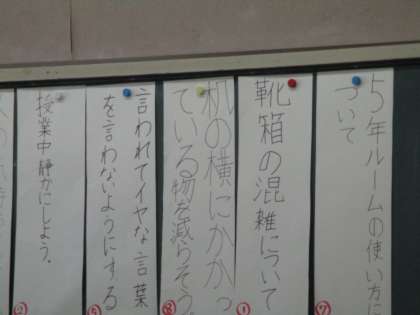 5年ルームの使い方に
ついて
⑦
靴箱の混雑について
①
机の横にかかっ
ている物を減らそう。
⑧
言われてイヤな言葉
を言わないようにする
⑤
授業中静かにしよう。
②